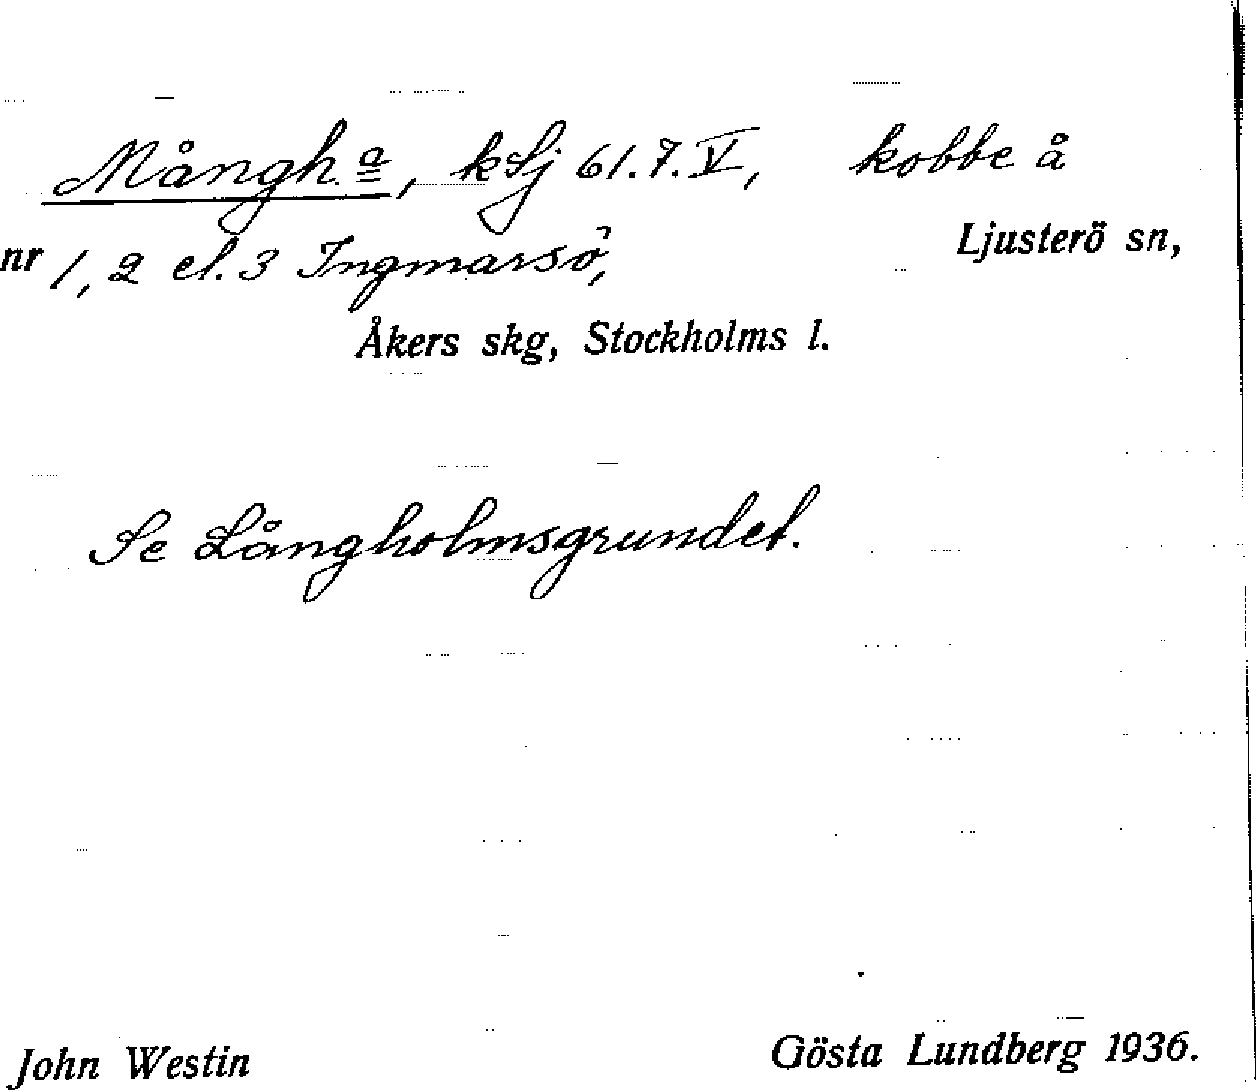 Mångh.a, kSj 61.7.V, kobbe å
nr 1, 2 el. 3 Ingmarsö, Ljusterö sn,
Åkers skg, Stockholms l.
Se Långholmsgrundet.
John Westin Gösta Lundberg 1936.